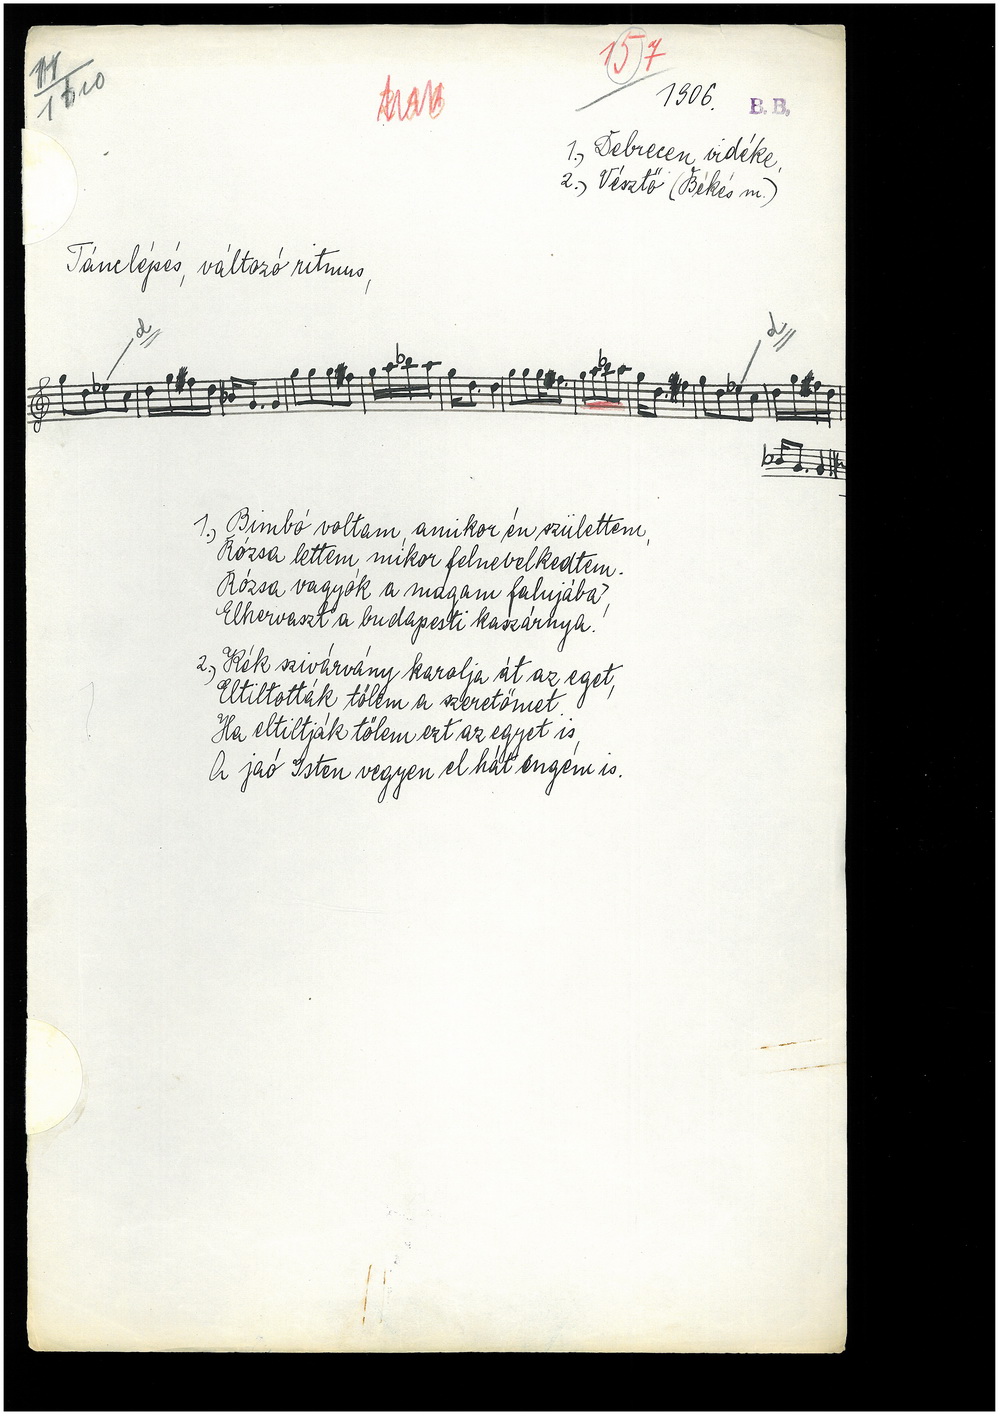 15 7
1906. B. B.
1., Debrecen vidéke,
2., Vésztő (Békés m.)
Tánclépés, változó ritmus,
d
d
1., Bimbó voltam, amikor én születtem,
Rózsa lettem, mikor felnevelkedtem.
Rózsa vagyok a magam falujába',
Elhervaszt a budapesti kaszárnya.
2., Kék szivárvány karolja át az eget,
Eltiltották tőlem a szeretőmet.
Ha eltiltják tőlem ezt az egyet is,
A jaó Isten vegyen el hát engem is.